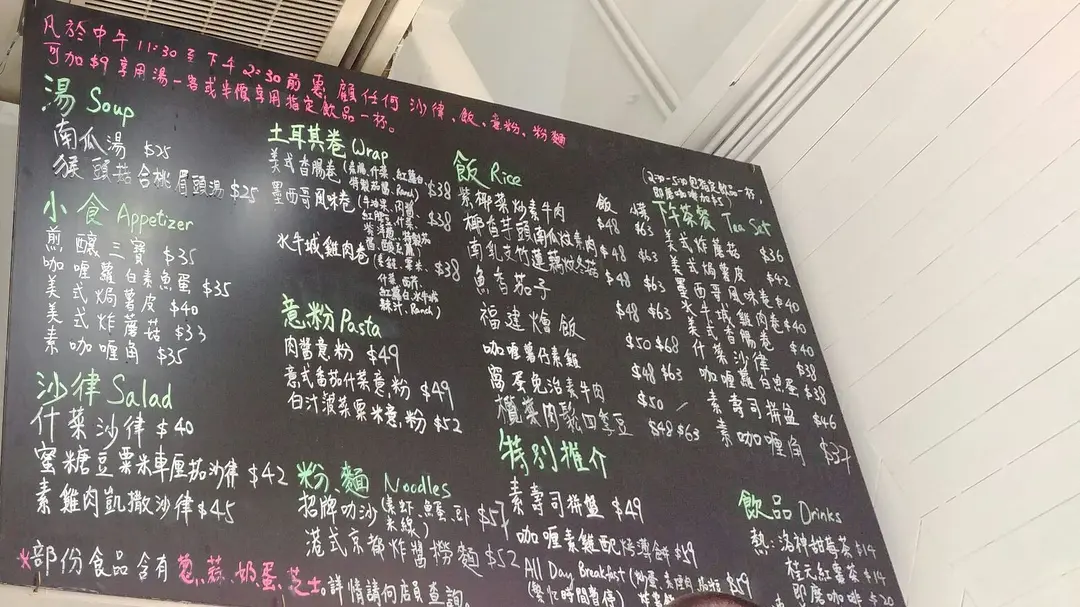 凡於中午 11:30 至下午 2:30 前惠顧任何沙律、飯、意粉、粉麵
可加$9享用湯一客或半價享用指定飲品一杯。
湯 Soup
南瓜湯 $25
猴頭菇合桃眉頭湯 $25
小食 Appetizer
煎釀三寶 $35
咖喱蘿蔔白素魚蛋 $35
美式焗薯皮 $40
美式炸蘑菇 $33
素咖喱角 $35
沙律 Salad
什菜沙律 $40
蜜糖豆粟米車厘茄沙律 $42
素雞肉凱撒沙律 $45
土耳其卷 Wrap
美式香腸卷 (素腸、什菜、紅蘿蔔、
特製茄醬、Ranch) $38
墨西哥風味卷 (牛油果、肉醬、
紅腰豆、什菜、 $38
水牛城雞肉卷 (素雞、粟米、 $38
什菜、西芹、
紅蘿白、水牛城
辣汁、Ranch)
意粉 Pasta
肉醬意粉 $49
意式番茄什菜意粉 $49
白汁菠菜粟米意粉 $52
粉、麵 Noodles
招牌叻沙 (素虾、魚蛋、卧
米線) $57
港式京都炸醬撈麵 $52
飯 Rice
飯 小菜
紫椰菜炒素牛肉 $48 $63
椰香芋頭南瓜炆素肉 $48 $63
南乳支竹蓮藕炆冬菇 $48 $63
魚香茄子 $48 $63
福建燴飯 $50 $68
咖喱薯仔素雞 $48 $63
窩蛋免治素牛肉 $50
欖菜肉鬆四季豆 $48 $63
特別推介
素壽司拼盤 $49
咖喱素雞配烤薄餅 $49
All Day Breakfast (炒蛋、素煙肉、 $59
(繁忙時間暫停)
(2:30-5:30 包指定飲品一杯,
即磨咖啡加$5)
下午茶餐 Tea Set
美式炸蘑菇 $36
美式焗薯皮 $42
墨西哥風味卷 $40
水牛城雞肉卷 $40
美式香腸卷 $40
什菜沙律 $38
咖喱蘿白魚蛋 $38
素壽司拼盆 $46
素咖喱角 $37
飲品 Drinks
熱: 洛神甜莓茶 $14
桂元紅棗茶 $14
即磨咖啡 $20
*部份食品含有蔥、蒜、奶、蛋、芝士。詳情請向店員查詢。